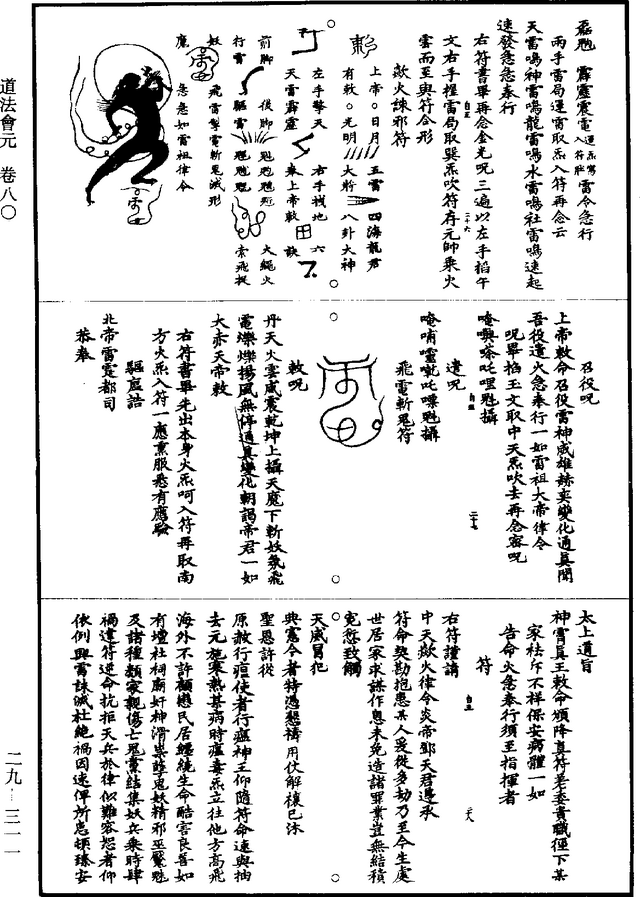 霹靂震電
雷令急行
兩手雷局運雷取炁入符再念云
天雷鳴神雷鳴龍雷鳴水雷鳴社雷鳴速起
速發急急奉行
右符書畢再念金光呪三遍以左手掐午
文右手捏雷局取巽炁吹符存元帥乘火
雲而至與符合形
歘火誅邪符
上帝。日月
五雷
四海龍君
有敕。光明
大將
八卦大神
左手擎天
右手找地
六
天雷霹靂
奉上帝敕
訣
前脚
後脚
大繩火
行雷
驅雷
索飛捉
妖
飛雷掣電斬鬼滅形
魔
急急如雷祖律令
召役呪
上帝敕命召役雷神威雄赫奕變化通真聞
吾役遣火急奉行一如雷祖大帝律令
呪畢掐玉文取中天炁吹去再念密呪
遣呪
飛電斬鬼符
敕呪
丹天火雲威震乾坤上攝天魔下斬妖氛飛
電爍爍揚風無停通真變化朝謁帝君一如
大赤天帝敕
右符書畢先出本身火炁呵入符再取南
方火炁入符一應熏服悉有應驗
驅瘟誥
北帝雷霆都司
恭奉
太上道旨
神霄真王敕命頒降真符差委責職徑下某
家袪斥不祥保安病體一如
告命火急奉行須至指揮者
符
右符謹請
中天歘火律令炎帝鄧天君遵承
符命契勘抱患某人爰從多劫乃至今生處
世居家求謀作息未免造諸罪業豈無結積
冤愆致觸
天威冒犯
典憲今者特憑懇禱用伏解禳已沐
聖恩許從
原赦行瘟使者行瘟神王仰隨符命速與抽
去元施寒熱甚病時瘟毒炁立往他方高飛
海外不許顧戀民居纏繞生命酷害良善如
有壇社祠廟奸神滑祟孽鬼妖精邪巫魘魅
及諸種類家親傷亡鬼黨結集妖兵乘時肆
禍違符逆命抗拒天兵於律似難容恕者仰
依例興雷誅滅杜絕禍因速俾所患頓臻安
道法會元 卷八〇
二九－三一一